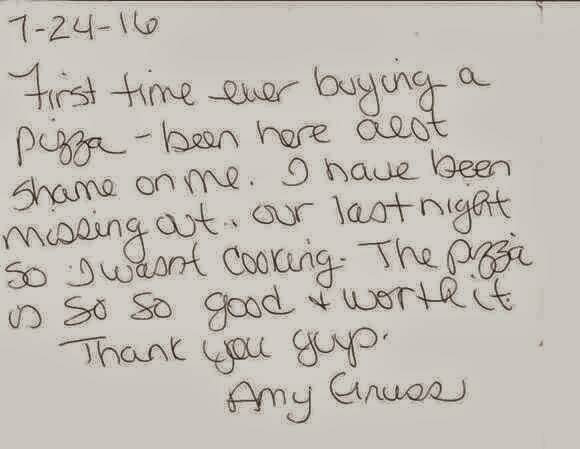 7-24-16
First time ever buying a
pizza - been here alot
shame on me. I have been
missing out. our last night
so I wasnt cooking. The pizza
is so so good & worth it.
Thank you guys.
Amy